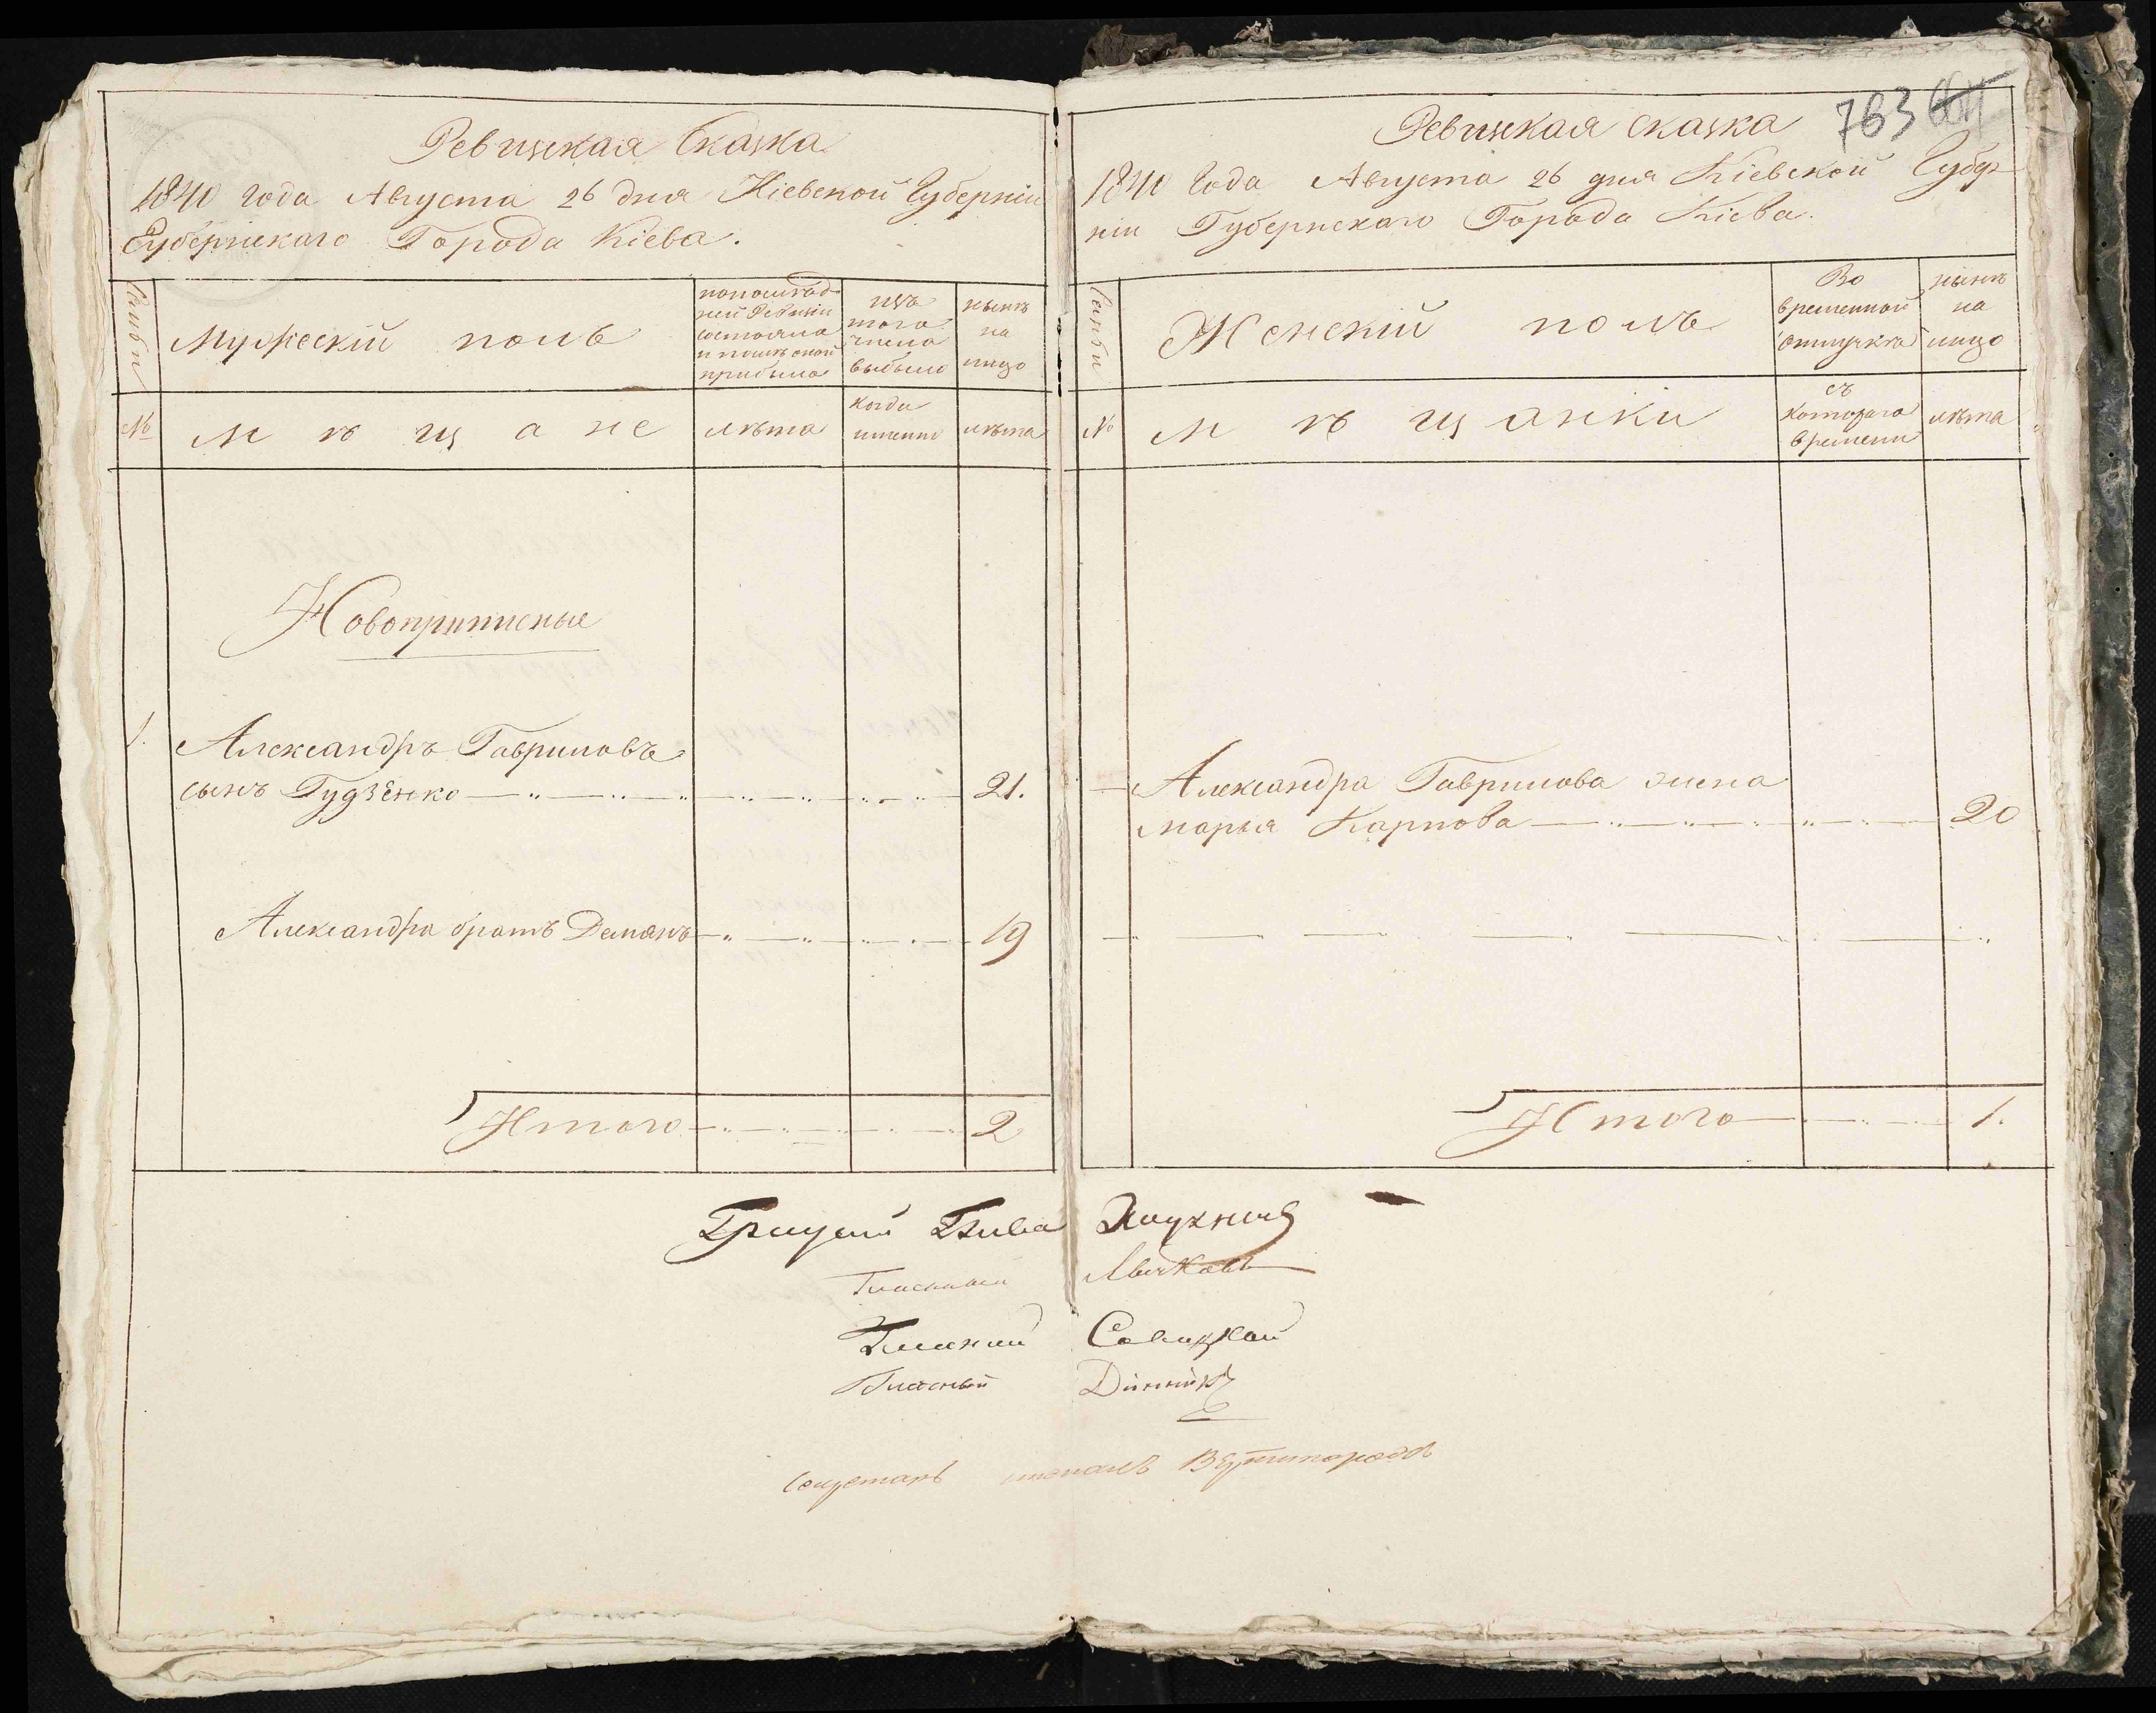 Ревижская Сказка
1840 года Августа 26 дня Кіевской Губерніи
Губернскаго Города Кіева.
Семьи
Мужескій полъ
по послѣд-
ней Ревизіи
состояло
и послѣ оной
прибыло
изъ
того
числа
выбыло
нынѣ
на
лицо
№
мѣщане
лѣта
когда
именно
лѣта
Новоприписные
1.
Александръ Гавриловъ
сынъ Гудзенко
21.
Александра братъ Демянъ
19
Итого
2
763
Ревижская сказка
1840 Года Августа 26 дня Кіевской Губер
ніи Губернскаго Города Кіева.
Семьи
Женскій полъ
Во
временной
отлучкѣ
нынѣ
на
лицо
№
мѣщанки
съ
котораго
времени
лѣта
Александра Гаврилова жена
марья Карпова
20
Итого
1.
Гласный
Гласный Савицкой
Гласный
Секретарь